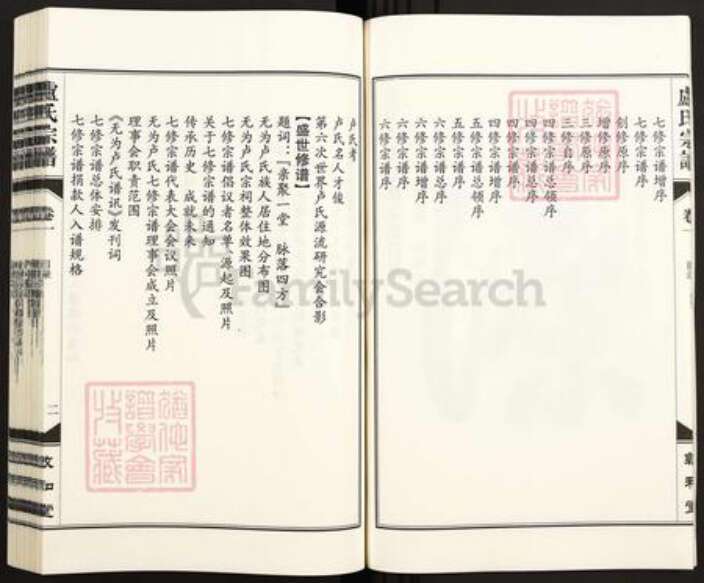 盧氏宗譜
卷一
七修宗谱增序
七修宗谱序
创修原序
增修原序
三修原序
三修自序
四修宗谱总领序
四修宗谱总序
四修宗谱领序
四修宗谱增序
五修宗谱领序
五修宗谱序
六修宗谱总序
六修宗谱增序
六修宗谱序
六修宗谱序
敦和堂
卢氏考
卢氏名人才俊
第六次世界卢氏源流研究会合影
【盛世修谱】
题词:『亲聚一堂 脉落四方』
无为卢氏族人居住地分布图
无为卢氏宗祠整体效果图
七修宗谱倡议者名单、源起及照片
关于七修宗谱的通知
传承历史 成就未来
七修宗谱代表大会会议照片
无为卢氏七修宗谱理事会成立及照片
理事会职责范围
《无为卢氏谱讯》发刊词
七修宗谱总体安排
七修宗谱捐款人入谱规格
盧氏宗譜
卷一
二
敦和堂
FamilySearch